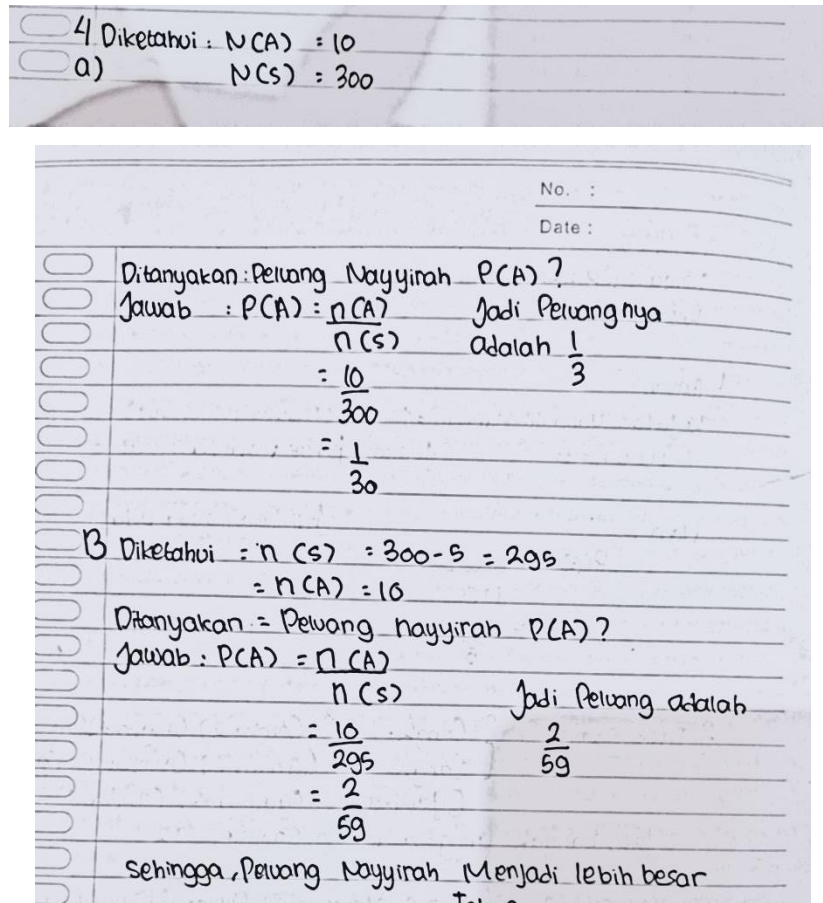 4 Diketahui : N(A) : 10
a) N(S) : 300
No. :
Date :
Ditanyakan : Peluang Nayyirah P(A) ?
Jawab : P(A) : n(A)/n(S) Jadi Peluangnya adalah 1/3
: 10/300
= 1/30
B Diketahui = n (S) : 300 - 5 = 295
= n(A) = 10
Ditanyakan = Peluang nayyirah P(A) ?
Jawab : P(A) = n(A)/n(S) Jadi Peluang adalah 2/59
: 10/295
= 2/59
Sehingga, Peluang Nayyirah Menjadi lebih besar